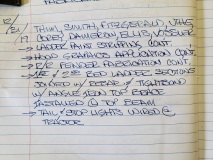 12/21/17 THIM, SMITH, FITZGERALD,
COREY, DAMERON, ELLIS, VOSSLER
→ LADDER PAINT STRIPPING CONT.
→ HOOD GRAPHICS APPLICATION CONT.
→ R/R FENDER FABRICATION CONT.
→ 1ST & 2ND BED LADDER SECTIONS
JOINED W/ REBAR & TIGHTBOND
W/ ANGLE IRON TOP BRACE
INSTALLED @ TOP BEAM
→ TAIL & STOP LIGHTS WIRED @
TRACTOR